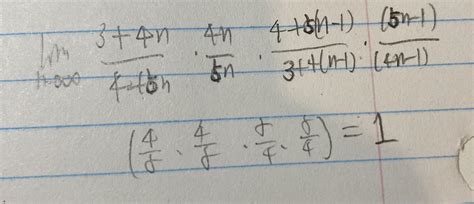 lim n→∞ (3+4n)/(4+5n) · 4n/5n · (4+5(n-1))/(3+4(n-1)) · (5n-1)/(4n-1)
(4/5 · 4/5 · 5/4 · 5/4) = 1